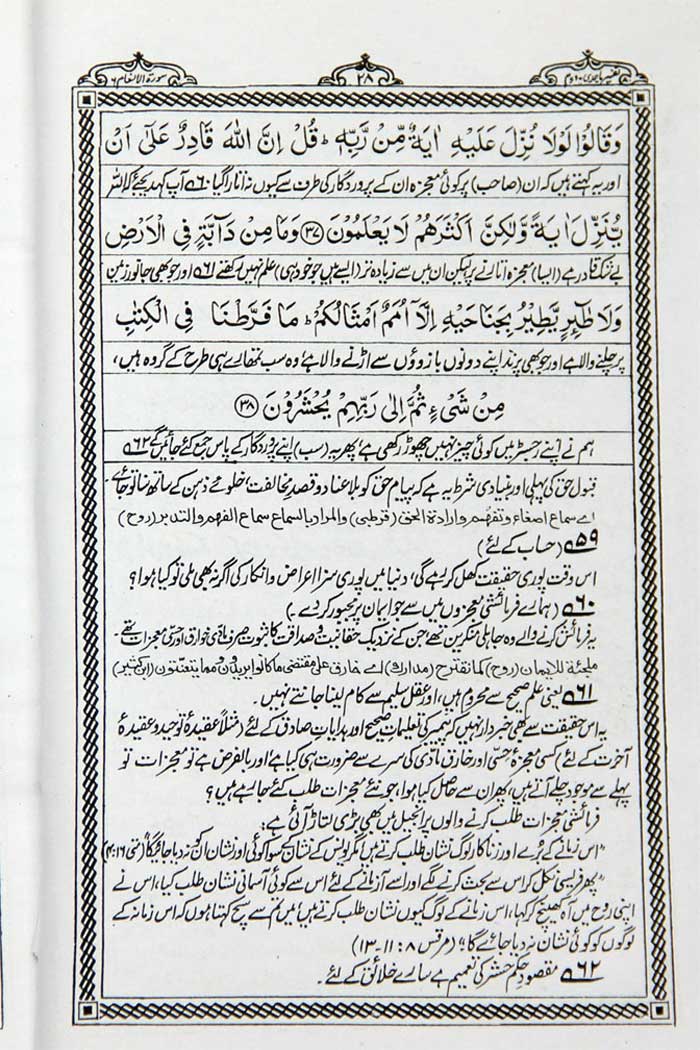 تفسیر ماجدی دوم
۲۸
سورۃ الانعام ۶
وَقَالُوْا لَوْلَا نُزِّلَ عَلَيْهِ اٰيَةٌ مِّنْ رَّبِّهٖ ۚ قُلْ اِنَّ اللهَ قَادِرٌ عَلٰٓى اَنْ
اور یہ کہتے ہیں کہ ان (صاحب) پر کوئی معجزہ ان کے پروردگار کی طرف سے کیوں نہ اتارا گیا ۶۰ آپ کہہ دیجئے کہ اللہ
يُّنَزِّلَ اٰيَةً وَّلٰكِنَّ اَكْثَرَهُمْ لَا يَعْلَمُوْنَ ۳۷ وَمَا مِنْ دَآبَّةٍ فِى الْاَرْضِ
بے شک قادر ہے (ایسا) معجزہ اتارنے پر لیکن ان میں سے زیادہ تر (ایسے ہیں جو خود ہی) علم نہیں رکھتے ۶۱ اور جو بھی جانور زمین
وَلَا طٰٓئِرٍ يَّطِيْرُ بِجَنَاحَيْهِ اِلَّآ اُمَمٌ اَمْثَالُكُمْ ۚ مَا فَرَّطْنَا فِى الْكِتٰبِ
پر چلنے والا ہے اور جو بھی پرند اپنے دونوں بازوؤں سے اڑنے والا ہے وہ سب تمھارے ہی طرح کے گروہ ہیں،
مِنْ شَىْءٍ ثُمَّ اِلٰى رَبِّهِمْ يُحْشَرُوْنَ ۳۸
ہم نے اپنے رجسٹر میں کوئی چیز نہیں چھوڑ رکھی ہے، پھر یہ (سب) اپنے پروردگار کے پاس جمع کئے جائیں گے ۶۲
قبول حق کی پہلی اور بنیادی شرط یہ ہے کہ پیام حق کو بلا عناد و قصد مخالفت، خلوئے ذہن کے ساتھ سنا تو جائے۔
اے سماع اصغاء وتفهّم وارادة الحق (قرطبی) والمراد بالسماع سماع الفهم والتدبر (روح)
۵۹ (حساب کے لئے)
اس وقت پوری حقیقت کھل کر رہے گی، دنیا میں پوری سزا اعراض و انکار کی اگر نہ بھی ملی تو کیا ہوا؟
۶۰ (ہمارے فرمائشی معجزوں میں سے جو ایمان پر مجبور کر دے۔)
یہ فرمائش کرنے والے وہ جاہلی منکرین تھے، جن کے نزدیک حقانیت و صداقت کا ثبوت صرف مادی خوارق اور حسی معجزات تھے۔
ملجئة للایمان (روح) کما نقترح (مدارک) اے خارق علی مقتضی ما کانوا یریدون ومما یتعنتون (ابن کثیر)
۶۱ یعنی علم صحیح سے محروم ہیں، اور عقل سلیم سے کام لینا جانتے نہیں۔
یہ اس حقیقت سے بھی خبردار نہیں کہ پیمبر کی تعلیمات صحیح اور ہدایات صادق کے لئے (مثلاً عقیدۂ توحید و عقیدۂ
آخرت کے لئے) کسی معجزۂ حسی اور خارق مادی کی سرے سے ضرورت ہی کیا ہے، اور بالفرض ہے تو معجزات تو
پہلے سے موجود چلے آتے ہیں، پھر ان سے حاصل کیا ہوا، جو نئے معجزات طلب کئے جا رہے ہیں؟
فرمائشی معجزات طلب کرنے والوں پر انجیل میں بھی بڑی لتاڑ آئی ہے:۔
"اس زمانے کے بُرے اور زناکار لوگ نشان طلب کرتے ہیں مگر یونس کے نشان کے سوا کوئی اور نشان ان کو نہ دیا جائیگا" (متی ۱۶:۴)
"پھر فریسی نکل کر اس سے بحث کرنے لگے اور اسے آزمانے کے لئے اس سے کوئی آسمانی نشان طلب کیا، اس نے
اپنی روح میں آہ کھینچ کر کہا، اس زمانے کے لوگ کیوں نشان طلب کرتے ہیں؟ میں تم سے سچ کہتا ہوں کہ اس زمانہ کے
لوگوں کو کوئی نشان نہ دیا جائے گا" (مرقس ۸:۱۱۔۱۳)
۶۲ مقصود حکم حشر کی تعمیم ہے سارے خلائق کے لئے۔